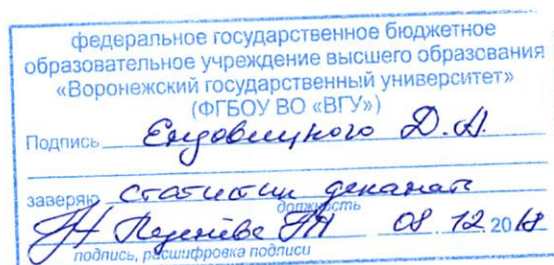 федеральное государственное бюджетное
образовательное учреждение высшего образования
«Воронежский государственный университет»
(ФГБОУ ВО «ВГУ»)
Подпись Ендовицкого Д.А.
заверяю
должность
08 12 20
подпись, расшифровка подписи